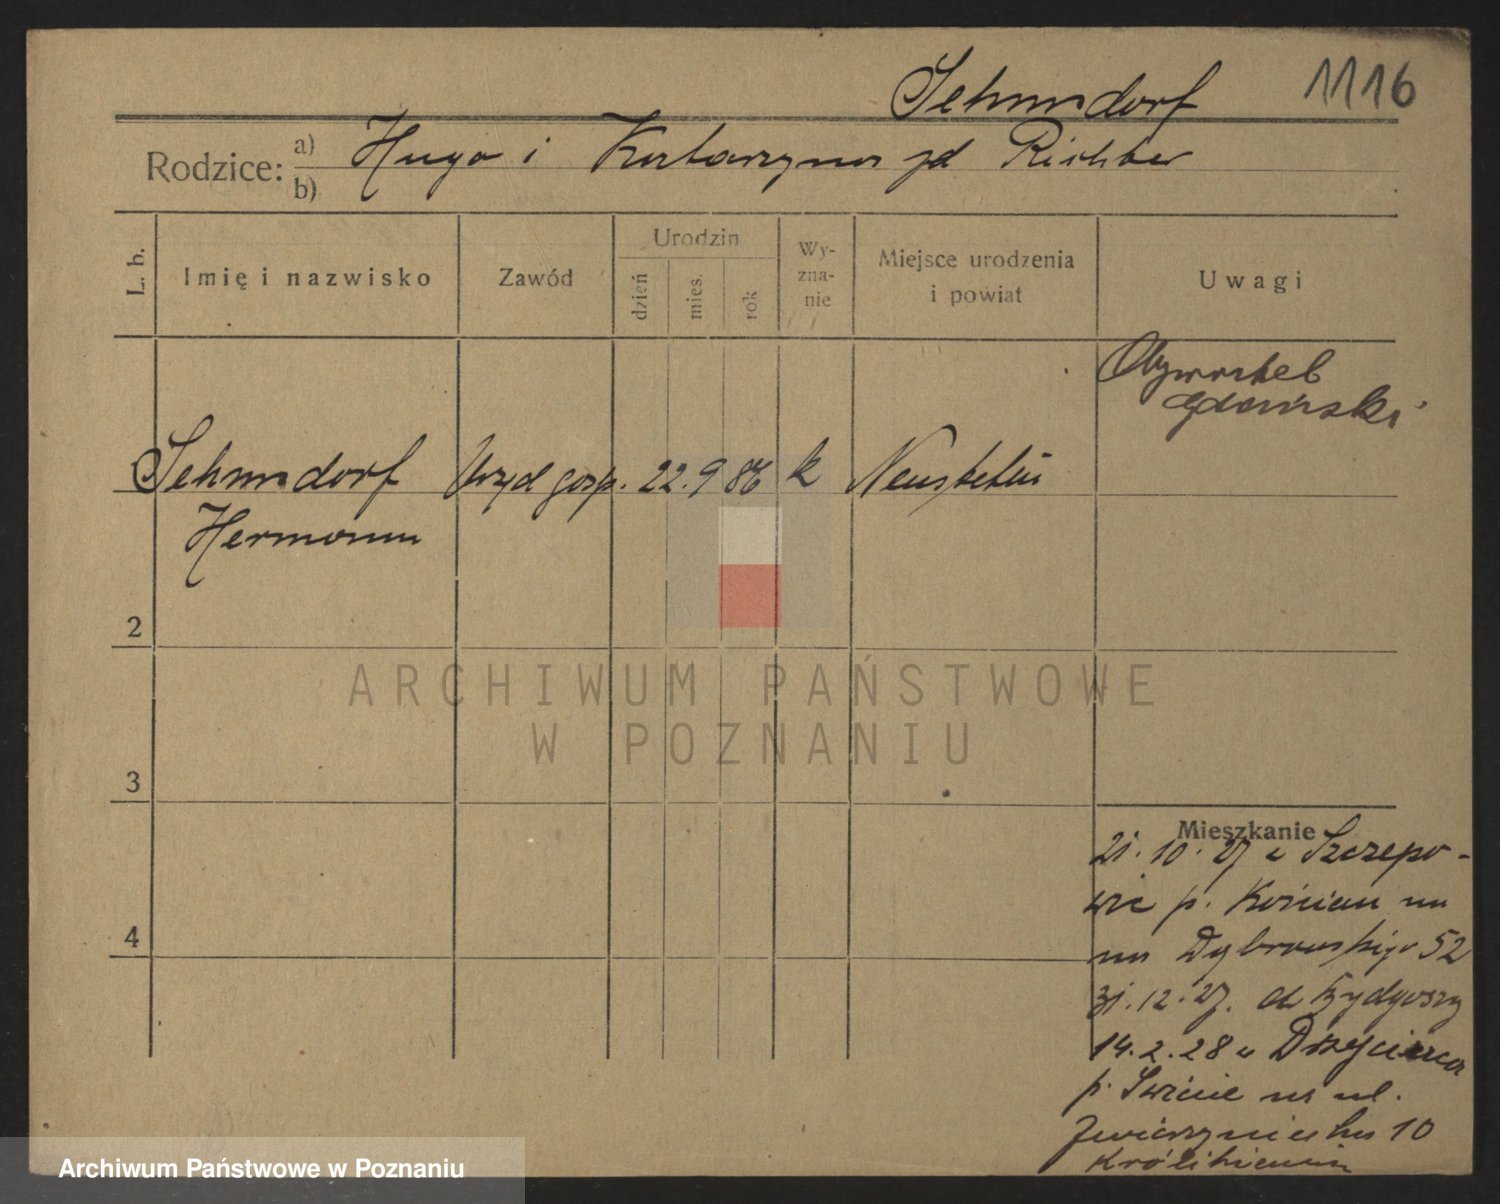 1116
Sehmsdorf
Rodzice: a) Hugo i Katarzyna zd Richter
b)
L. b.
Imię i nazwisko
Zawód
Urodzin
dzień
mies.
rok
Wy-
zna-
nie
Miejsce urodzenia
i powiat
Uwagi
Obywatel
gdański
Sehmsdorf Urzęd gosp. 22. 9 86 k Neustettin
Hermann
2
3
4
Mieszkanie
21. 10. 27 z Szczepo-
wic p. Kościan na
Dąbrowskiego 52
31. 12. 27. do Bydgoszcz
14. 2. 28 z Drzycimia
p. Świecie na ul.
Zwierzyniecka 10
ARCHIWUM PAŃSTWOWE
W POZNANIU
Archiwum Państwowe w Poznaniu